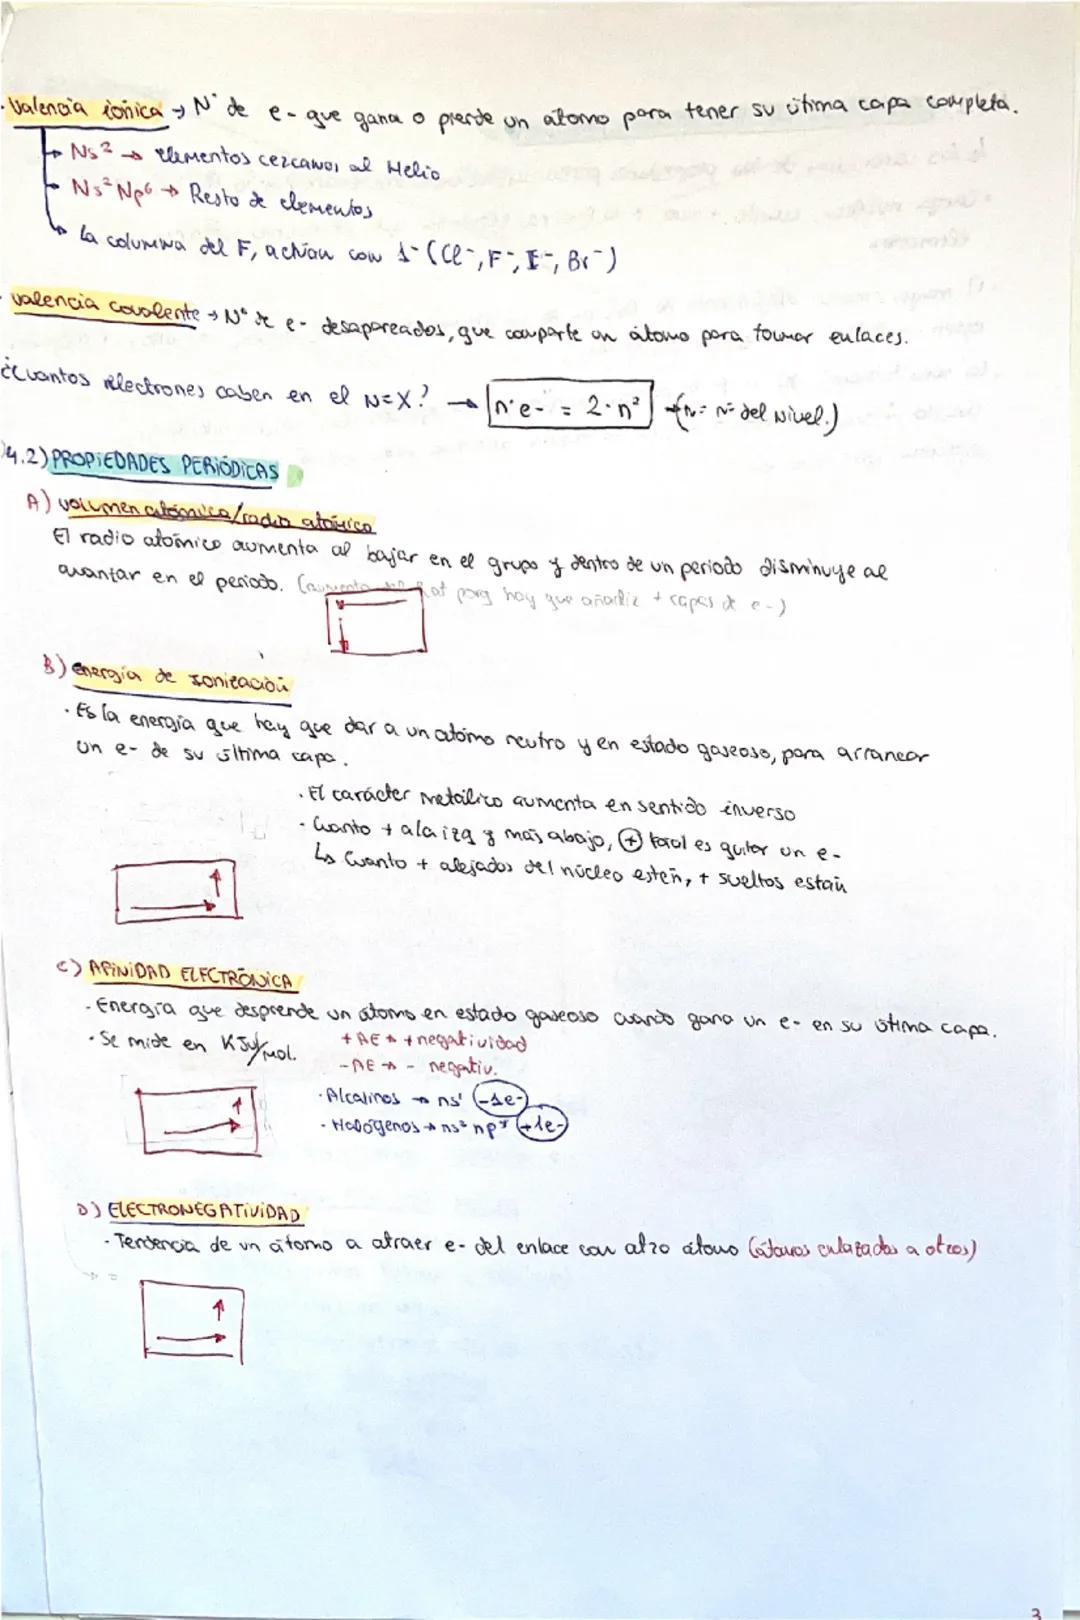 · Valencia iónica → Nº de e- que gana o pierde un átomo para tener su última capa completa.
→ Ns² → elementos cercanos al Helio
→ Ns² Np⁶ → Resto de elementos
→ La columna del F, actúan con 1- (Cl⁻, F⁻, I⁻, Br⁻)
· valencia covalente → Nº de e- desapareados, que comparte un átomo para formar enlaces.
¿Cuantos electrones caben en el N=X? → nºe- = 2·n² → (n= nº del nivel.)
4.2) PROPIEDADES PERIÓDICAS
A) volumen atómico/radio atómico
El radio atómico aumenta al bajar en el grupo y dentro de un periodo disminuye al
avanzar en el periodo. (aumenta del Rat porq hay que añadir + capas de e-)
B) energía de Ionización
· Es la energía que hay que dar a un atómo neutro y en estado gaseoso, para arrancar
un e- de su última capa.
· El carácter metálico aumenta en sentido inverso
· Cuanto + a la izq y más abajo, + fácil es quitar un e-
↳ Cuanto + alejados del núcleo estén, + sueltos están
C) AFINIDAD ELECTRÓNICA
· Energía que desprende un átomo en estado gaseoso cuando gana un e- en su última capa.
· Se mide en KJul/mol.
+ AE → + negatividad
- AE → - negativ.
· Alcalinos → ns¹ (-1e-)
· Halógenos → ns² np⁵ (+1e-)
D) ELECTRONEGATIVIDAD
· Tendencia de un átomo a atraer e- del enlace con otro átomo (átomos enlazados a otros)
3